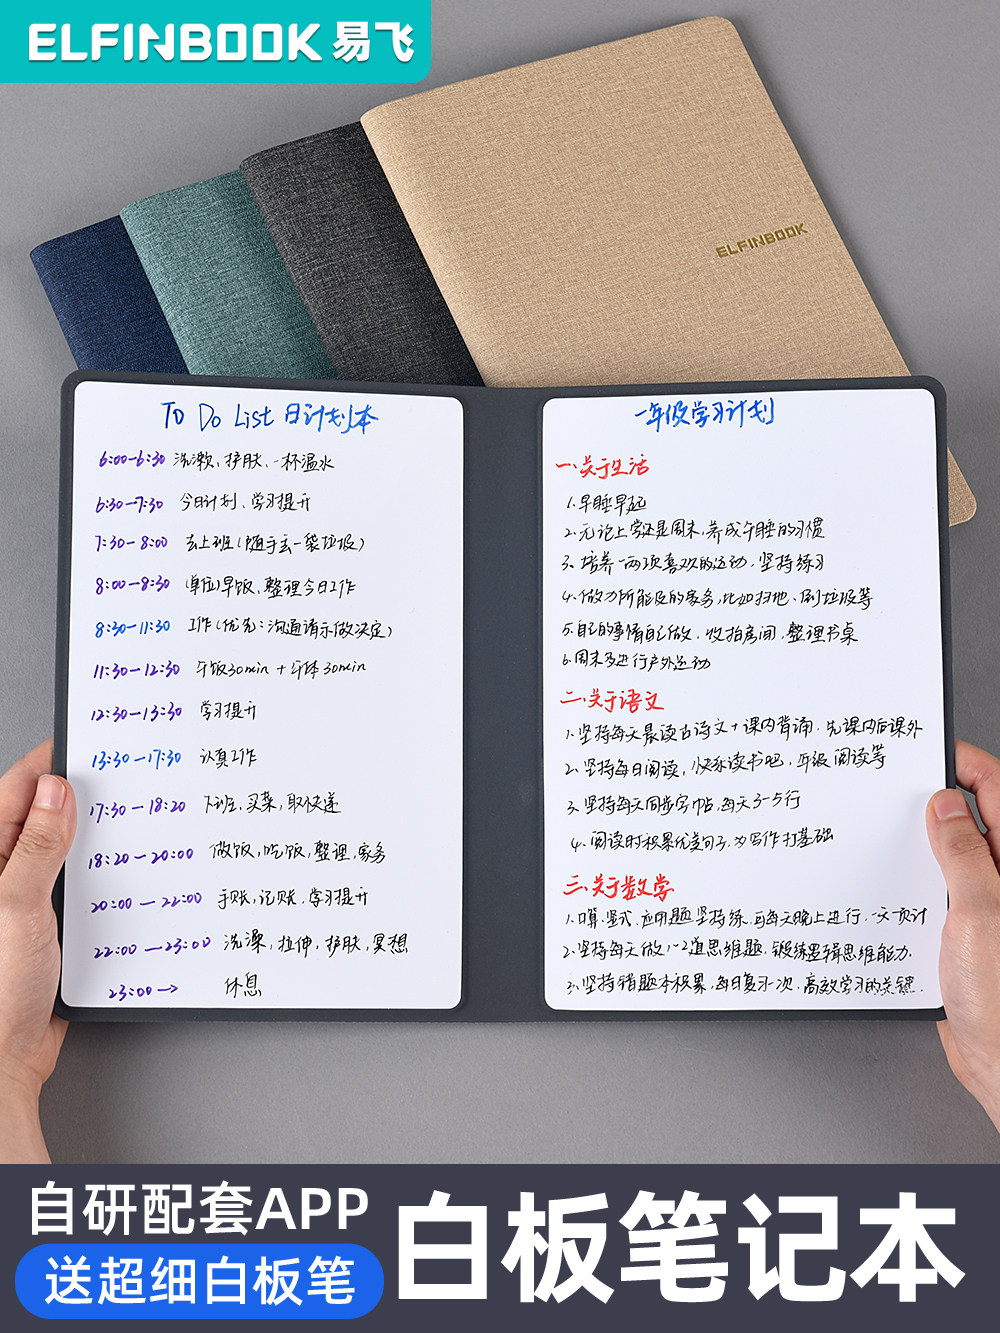 ELFINBOOK 易飞
ELFINBOOK
To Do List 日计划本
6:00-6:30 洗漱、护肤、一杯温水
6:30-7:30 今日计划、学习提升
7:30-8:00 去上班(随手丢一袋垃圾)
8:00-8:30 (单位)早饭、整理今日工作
8:30-11:30 工作(优先:沟通请示做决定)
11:30-12:30 午饭30min+午休30min
12:30-13:30 学习提升
13:30-17:30 认真工作
17:30-18:20 下班,买菜,取快递
18:20-20:00 做饭,吃饭,整理,家务
20:00-22:00 手账,记账,学习提升
22:00-23:00 洗澡,拉伸,护肤,冥想
23:00→ 休息
一年级学习计划
一、关于生活
1、早睡早起
2、无论上学还是周末,养成午睡的习惯
3、培养一两项喜欢的运动,坚持练习
4、做力所能及的家务,比如扫地、倒垃圾等
5、自己的事情自己做,收拾房间,整理书桌
6、周末多进行户外运动
二、关于语文
1、坚持每天晨读古诗文+课内背诵,先课内后课外
2、坚持每日阅读,快乐读书吧,年级阅读等
3、坚持每天同步字帖,每天3-5行
4、阅读时积累优美句子,为写作打基础
三、关于数学
1、口算、竖式、应用题坚持练,可每天晚上进行,一天一页计
2、坚持每天做1-2道思维题,锻练逻辑思维能力.
3、坚持错题本积累,每日复习一次,高效学习的关键.
自研配套APP
送超细白板笔
白板笔记本